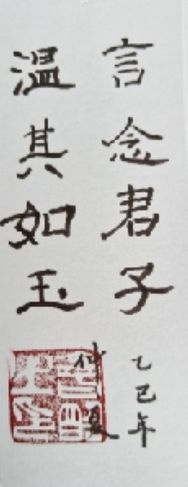 言念君子
温其如玉
乙巳年
仲夏